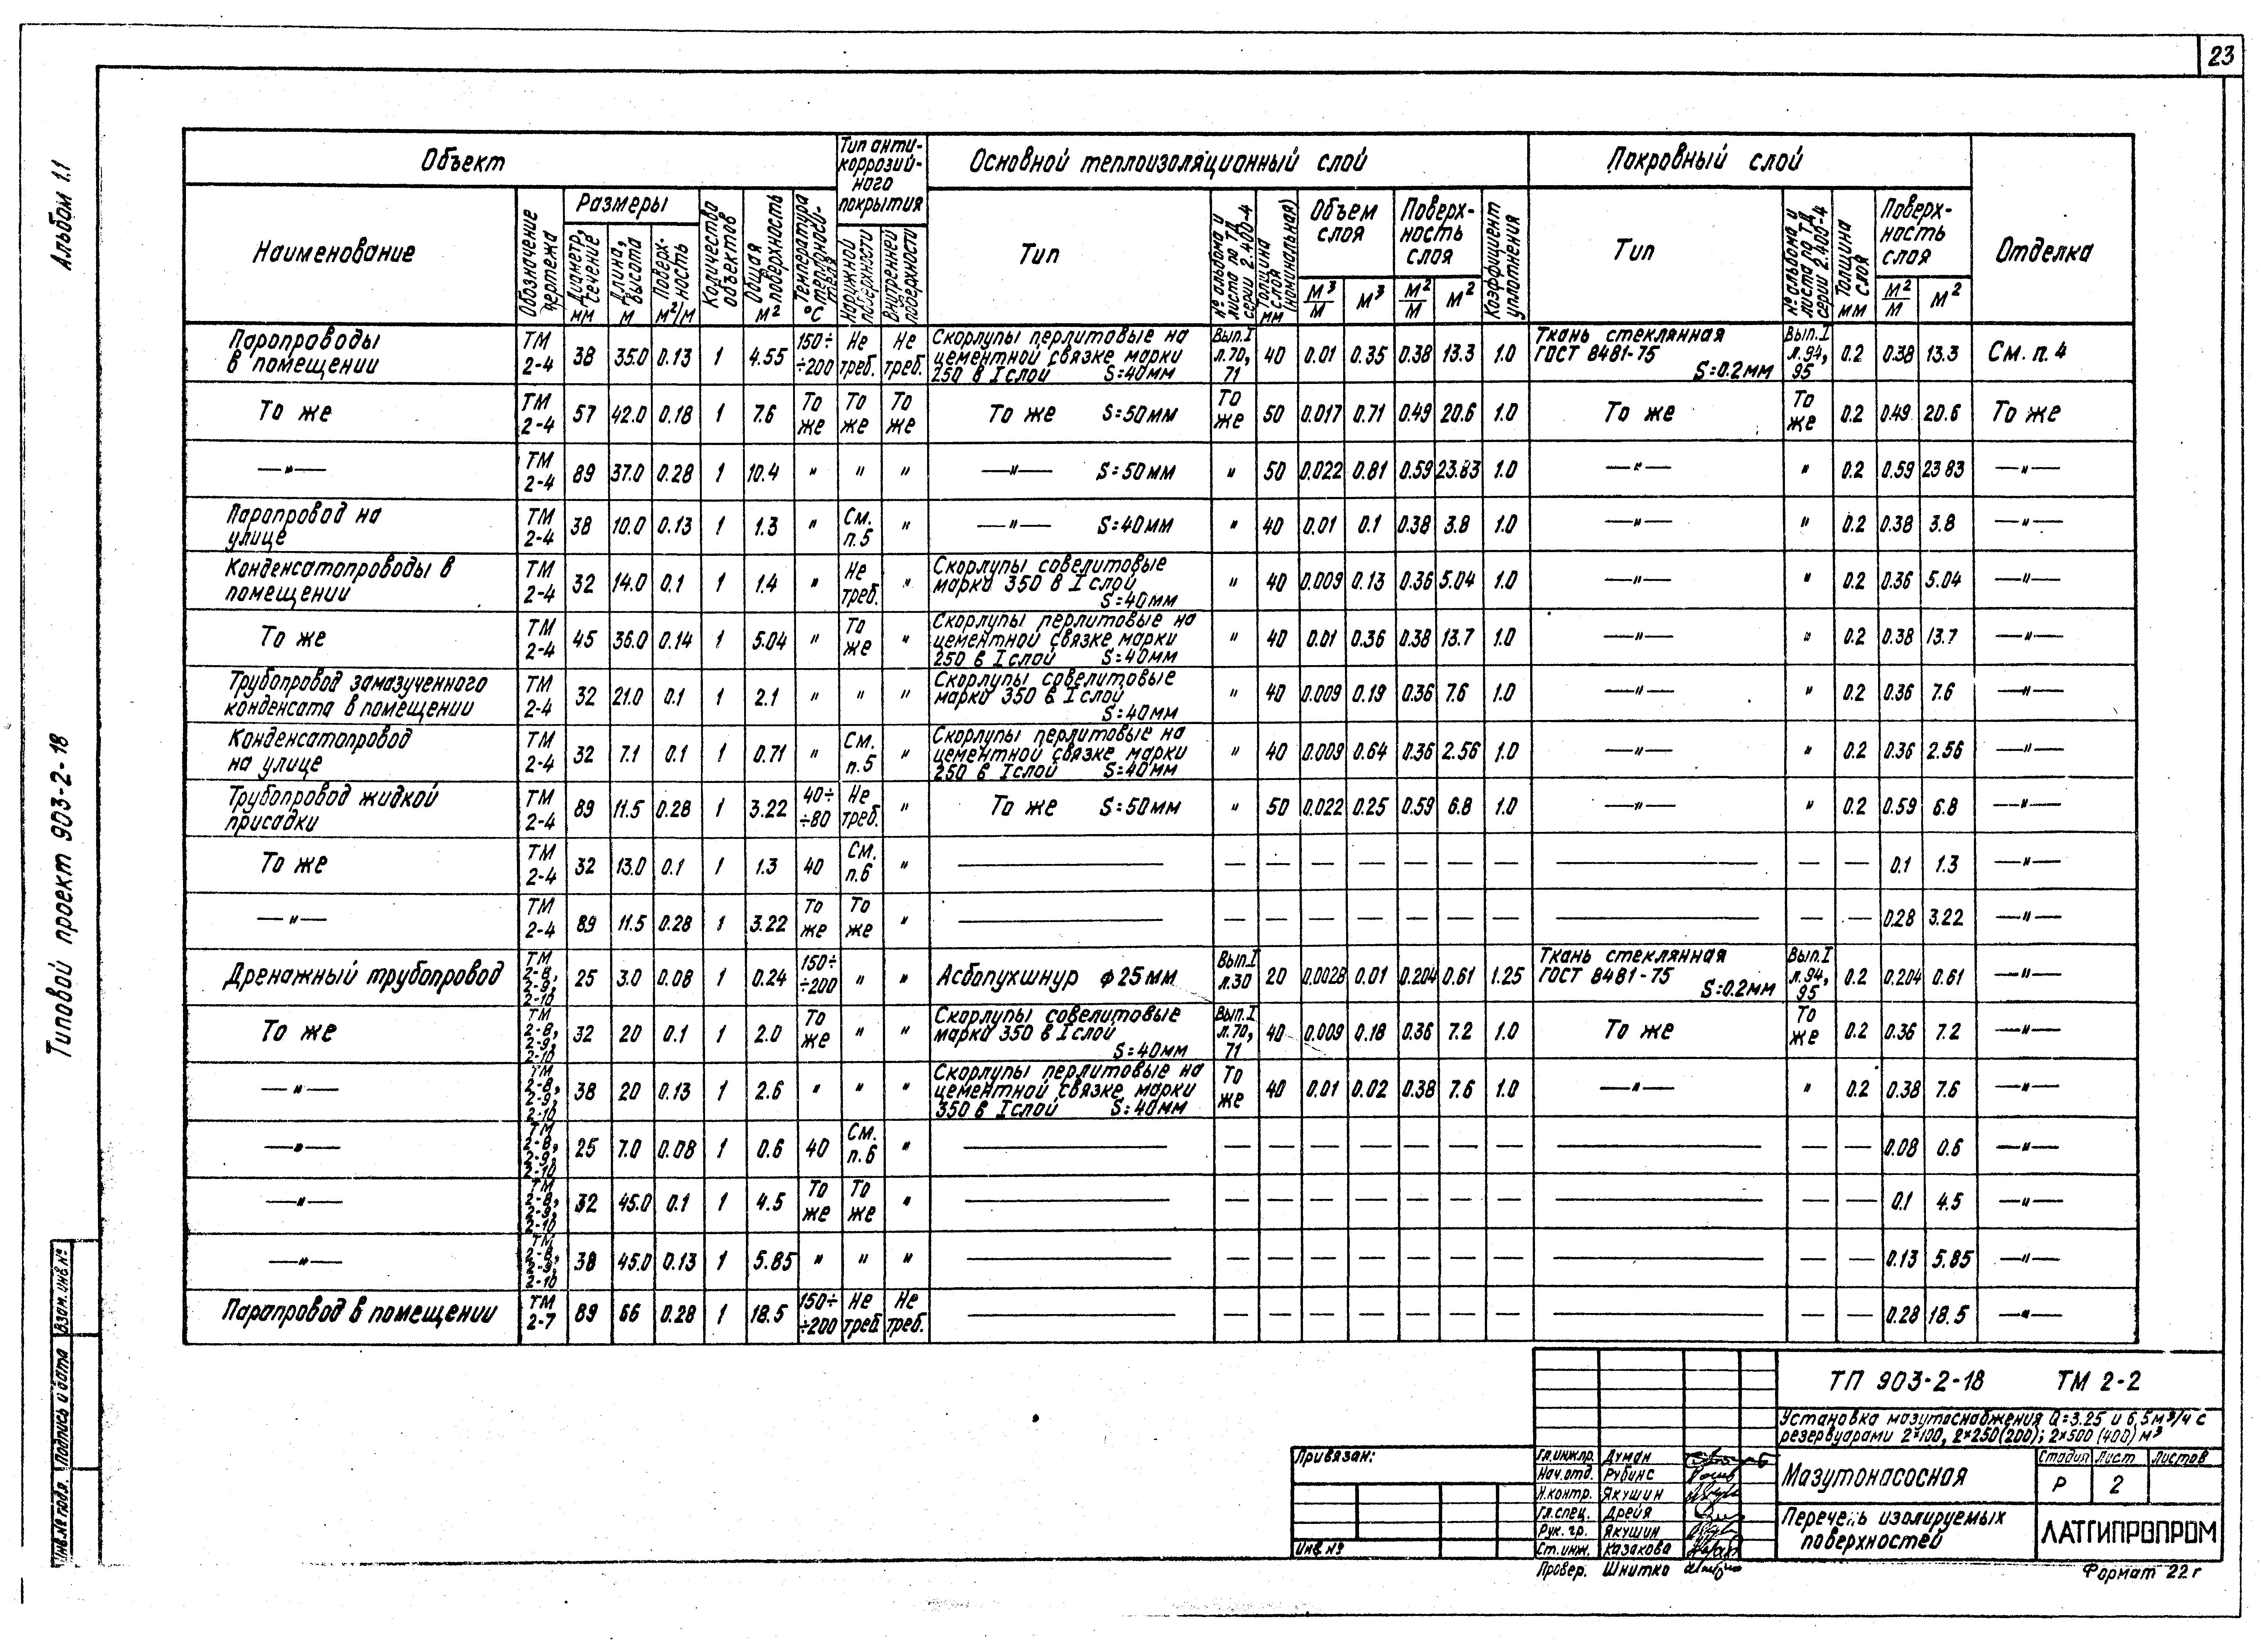 23
Альбом 1.1
Типовой проект 903-2-18
Объект
Тип анти-
коррозий-
ного
покрытия
Основной теплоизоляционный слой
Покровный слой
Отделка
Наименование
Обозначение чертежа
Размеры
Диаметр, сечение мм
Длина, высота м
Поверх-ность м²/м
Количество объектов
Общая поверхность м²
Температура теплоносителя °С
Наружной поверхности
Внутренней поверхности
Тип
№ альбома и листа по ТД серии 2.400-4
Толщина слоя (номинальная) мм
Объем слоя
м³/м м³
Поверх-ность слоя
м²/м м²
Коэффициент уплотнения
Тип
№ альбома и листа по ТД серии 2.400-4
Толщина слоя мм
Поверх-ность слоя
м²/м м²
Паропроводы в помещении ТМ 2-4 38 35.0 0.13 1 4.55 150÷÷200 Не треб. Не треб. Скорлупы перлитовые на цементной связке марки 250 в I слой S=40мм Вып.I л.70, 71 40 0.01 0.35 0.38 13.3 1.0 Ткань стеклянная ГОСТ 8481-75 S=0.2мм Вып.I л.94, 95 0.2 0.38 13.3 См. п. 4
То же ТМ 2-4 57 42.0 0.18 1 7.6 То же То же То же То же S=50мм То же 50 0.017 0.71 0.49 20.6 1.0 То же То же 0.2 0.49 20.6 То же
—"— ТМ 2-4 89 37.0 0.28 1 10.4 " " " —"— S=50мм " 50 0.022 0.81 0.59 23.83 1.0 —"— " 0.2 0.59 23 83 —"—
Паропровод на улице ТМ 2-4 38 10.0 0.13 1 1.3 " См. п.5 " —"— S=40мм " 40 0.01 0.1 0.38 3.8 1.0 —"— " 0.2 0.38 3.8 —"—
Конденсатопроводы в помещении ТМ 2-4 32 14.0 0.1 1 1.4 " Не треб. " Скорлупы совелитовые марки 350 в I слой S=40мм " 40 0.009 0.13 0.36 5.04 1.0 —"— " 0.2 0.36 5.04 —"—
То же ТМ 2-4 45 36.0 0.14 1 5.04 " То же " Скорлупы перлитовые на цементной связке марки 250 в I слой S=40мм " 40 0.01 0.36 0.38 13.7 1.0 —"— " 0.2 0.38 13.7 —"—
Трубопровод замазученного конденсата в помещении ТМ 2-4 32 21.0 0.1 1 2.1 " " " Скорлупы совелитовые марки 350 в I слой S=40мм " 40 0.009 0.19 0.36 7.6 1.0 —"— " 0.2 0.36 7.6 —"—
Конденсатопровод на улице ТМ 2-4 32 7.1 0.1 1 0.71 " См. п.5 " Скорлупы перлитовые на цементной связке марки 250 в I слой S=40мм " 40 0.009 0.64 0.36 2.56 1.0 —"— " 0.2 0.36 2.56 —"—
Трубопровод жидкой присадки ТМ 2-4 89 11.5 0.28 1 3.22 40÷÷80 Не треб. " То же S=50мм " 50 0.022 0.25 0.59 6.8 1.0 —"— " 0.2 0.59 6.8 —"—
То же ТМ 2-4 32 13.0 0.1 1 1.3 40 См. п.6 " — — — — — — — — — — — 0.1 1.3 —"—
—"— ТМ 2-4 89 11.5 0.28 1 3.22 То же То же " — — — — — — — — — — — 0.28 3.22 —"—
Дренажный трубопровод ТМ 2-8, 2-9, 2-10 25 3.0 0.08 1 0.24 150÷÷200 " " Асбопухшнур ф25мм Вып.I л.30 20 0.0028 0.01 0.204 0.61 1.25 Ткань стеклянная ГОСТ 8481-75 S=0.2мм Вып.I л.94, 95 0.2 0.204 0.61 —"—
То же ТМ 2-8, 2-9, 2-10 32 20 0.1 1 2.0 То же " " Скорлупы совелитовые марки 350 в I слой S=40мм Вып.I л.70, 71 40 0.009 0.18 0.36 7.2 1.0 То же То же 0.2 0.36 7.2 —"—
—"— ТМ 2-8, 2-9, 2-10 38 20 0.13 1 2.6 " " " Скорлупы перлитовые на цементной связке марки 350 в I слой S=40мм То же 40 0.01 0.02 0.38 7.6 1.0 —"— " 0.2 0.38 7.6 —"—
—"— ТМ 2-8, 2-9, 2-10 25 7.0 0.08 1 0.6 40 См. п.6 " — — — — — — — — — — — 0.08 0.6 —"—
—"— ТМ 2-8, 2-9, 2-10 32 45.0 0.1 1 4.5 То же То же " — — — — — — — — — — — 0.1 4.5 —"—
—"— ТМ 2-8, 2-9, 2-10 38 45.0 0.13 1 5.85 " " " — — — — — — — — — — — 0.13 5.85 —"—
Паропровод в помещении ТМ 2-7 89 66 0.28 1 18.5 150÷÷200 Не треб. Не треб. — — — — — — — — — — — 0.28 18.5 —"—
ТП 903-2-18 ТМ 2-2
Установка мазутоснабжения Q=3.25 и 6,5м³/ч с
резервуарами 2×100, 2×250(200); 2×500 (400) м³
Привязан:
Инв №
Гл.инж.пр. Думан
Нач.отд. Рубинс
Н.контр. Якушин
Гл.спец. Дрейя
Рук. гр. Якушин
Ст.инж. Казакова
Провер. Шнитко
Мазутонасосная
Стадия Лист Листов
Р 2
Перечень изолируемых
поверхностей
ЛАТГИПРОПРОМ
Формат 22г
Инв.№ подл. Подпись и дата Взам.инв №